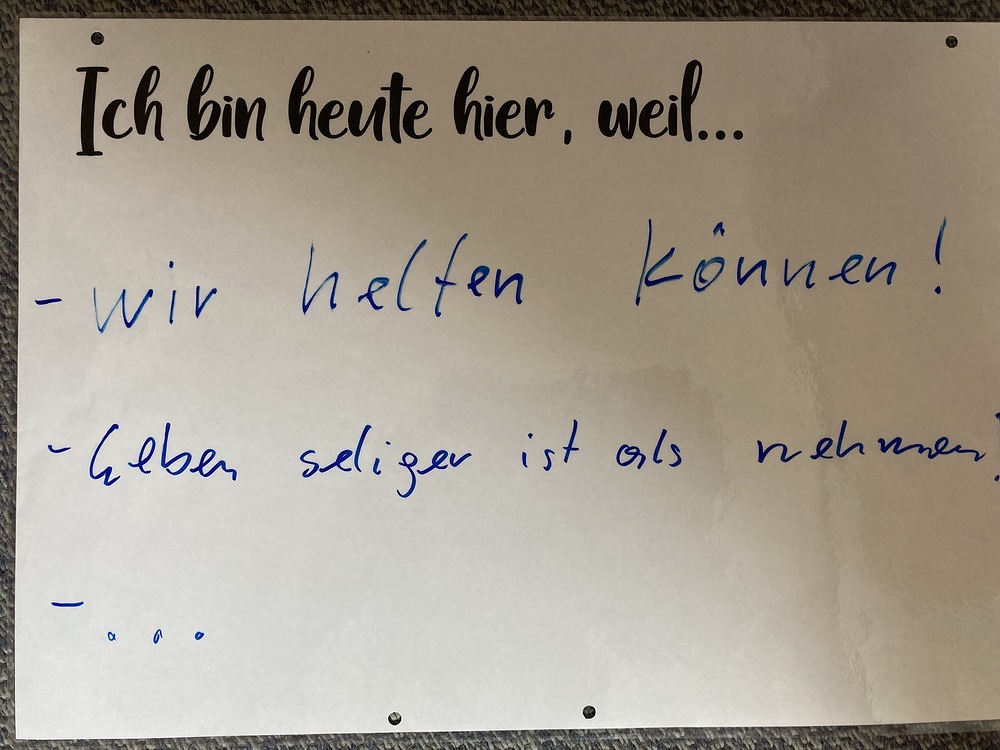 Ich bin heute hier, weil...
- wir helfen können!
- Geben seliger ist als nehmen!
- ...